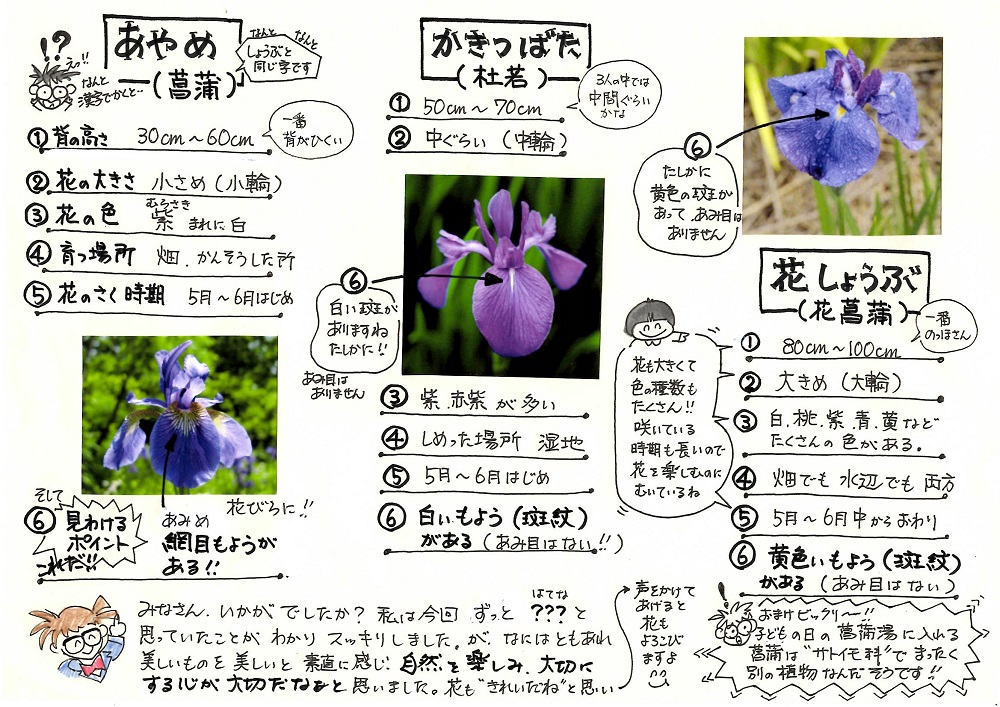 !?
えッ!!
なんと
漢字でかくと…
あやめ
(菖蒲)
なんと なんと
しょうぶと
同じ字です
① 背の高さ 30cm～60cm
一番
背がひくい
② 花の大きさ 小さめ(小輪)
むらさき
③ 花の色 紫 まれに白
④ 育つ場所 畑.かんそうした所
⑤ 花のさく時期 5月～6月はじめ
そして
⑥ 見わける
ポイント
これだ!!
あみめ 花びらに!!
網目もようが
ある!!
かきつばた
(杜若)
① 50cm～70cm
3人の中では
中間ぐらい
かな
② 中ぐらい(中輪)
⑥
白い斑が
ありますね
たしかに!!
あみ目は
ありません
③ 紫.赤紫が多い
④ しめった場所 湿地
⑤ 5月～6月はじめ
⑥ 白いもよう(斑紋)
がある(あみ目はない!!)
⑥
たしかに
黄色の斑が
あって.あみ目は
ありません
花しょうぶ
(花菖蒲)
一番
のっぽさん
① 80cm～100cm
② 大きめ(大輪)
③ 白.桃.紫.青.黄など
たくさんの色がある.
④ 畑でも水辺でも両方
⑤ 5月～6月中からおわり
⑥ 黄色いもよう(斑紋)
がある(あみ目はない)
花も大きくて
色の種数も
たくさん!!
咲いている
時期も長いので
花を楽しむのに
むいているね
はてな
みなさん.いかがでしたか? 私は今回 ずっと ??? と
思っていたことが わかり スッキリしました.が.なにはともあれ
美しいものを 美しいと 素直に感じ.自然を楽しみ.大切に
する心が大切だなぁと思いました。花も"きれいだね"と思い
声をかけて
あげると
花も
よろこび
ますよ
!
おまけビックリ～!!
子どもの日の菖蒲湯に入れる
菖蒲は"サトイモ科"でまったく
別の植物なんだそうです!!